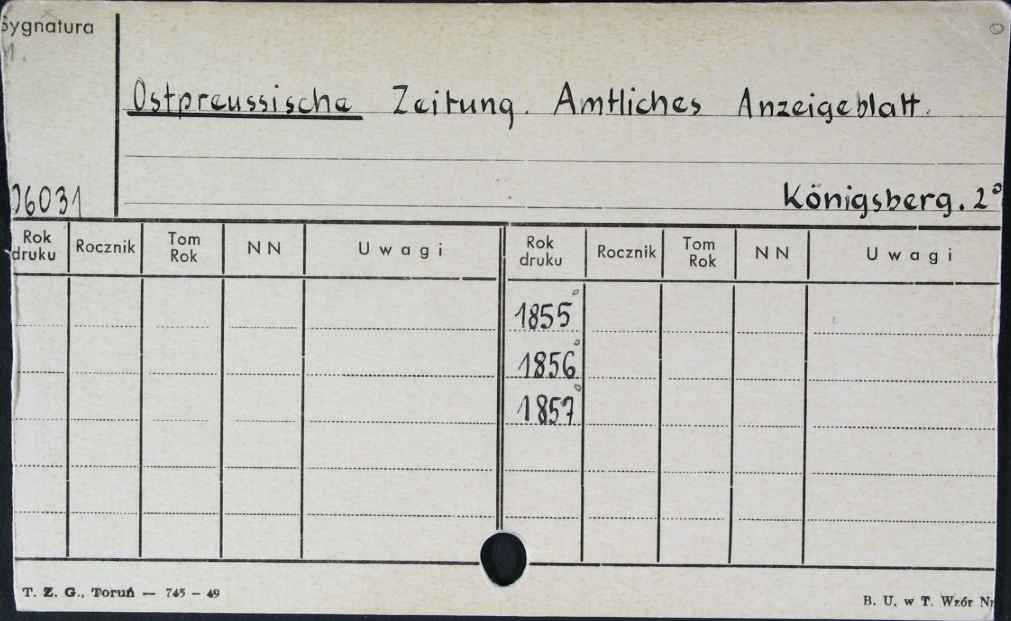 Sygnatura
Ostpreussische Zeitung. Amtliches Anzeigeblatt.
06031
Königsberg. 2°
Rok druku Rocznik Tom Rok NN Uwagi Rok druku Rocznik Tom Rok NN Uwagi
1855
1856
1857
T. Z. G., Toruń — 745 – 49
B. U. w T. Wzór Nr